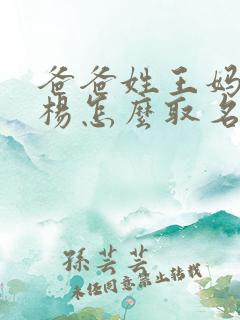 爸爸姓王妈
楊怎麼取名
孫芸芸
未经同意禁止转载